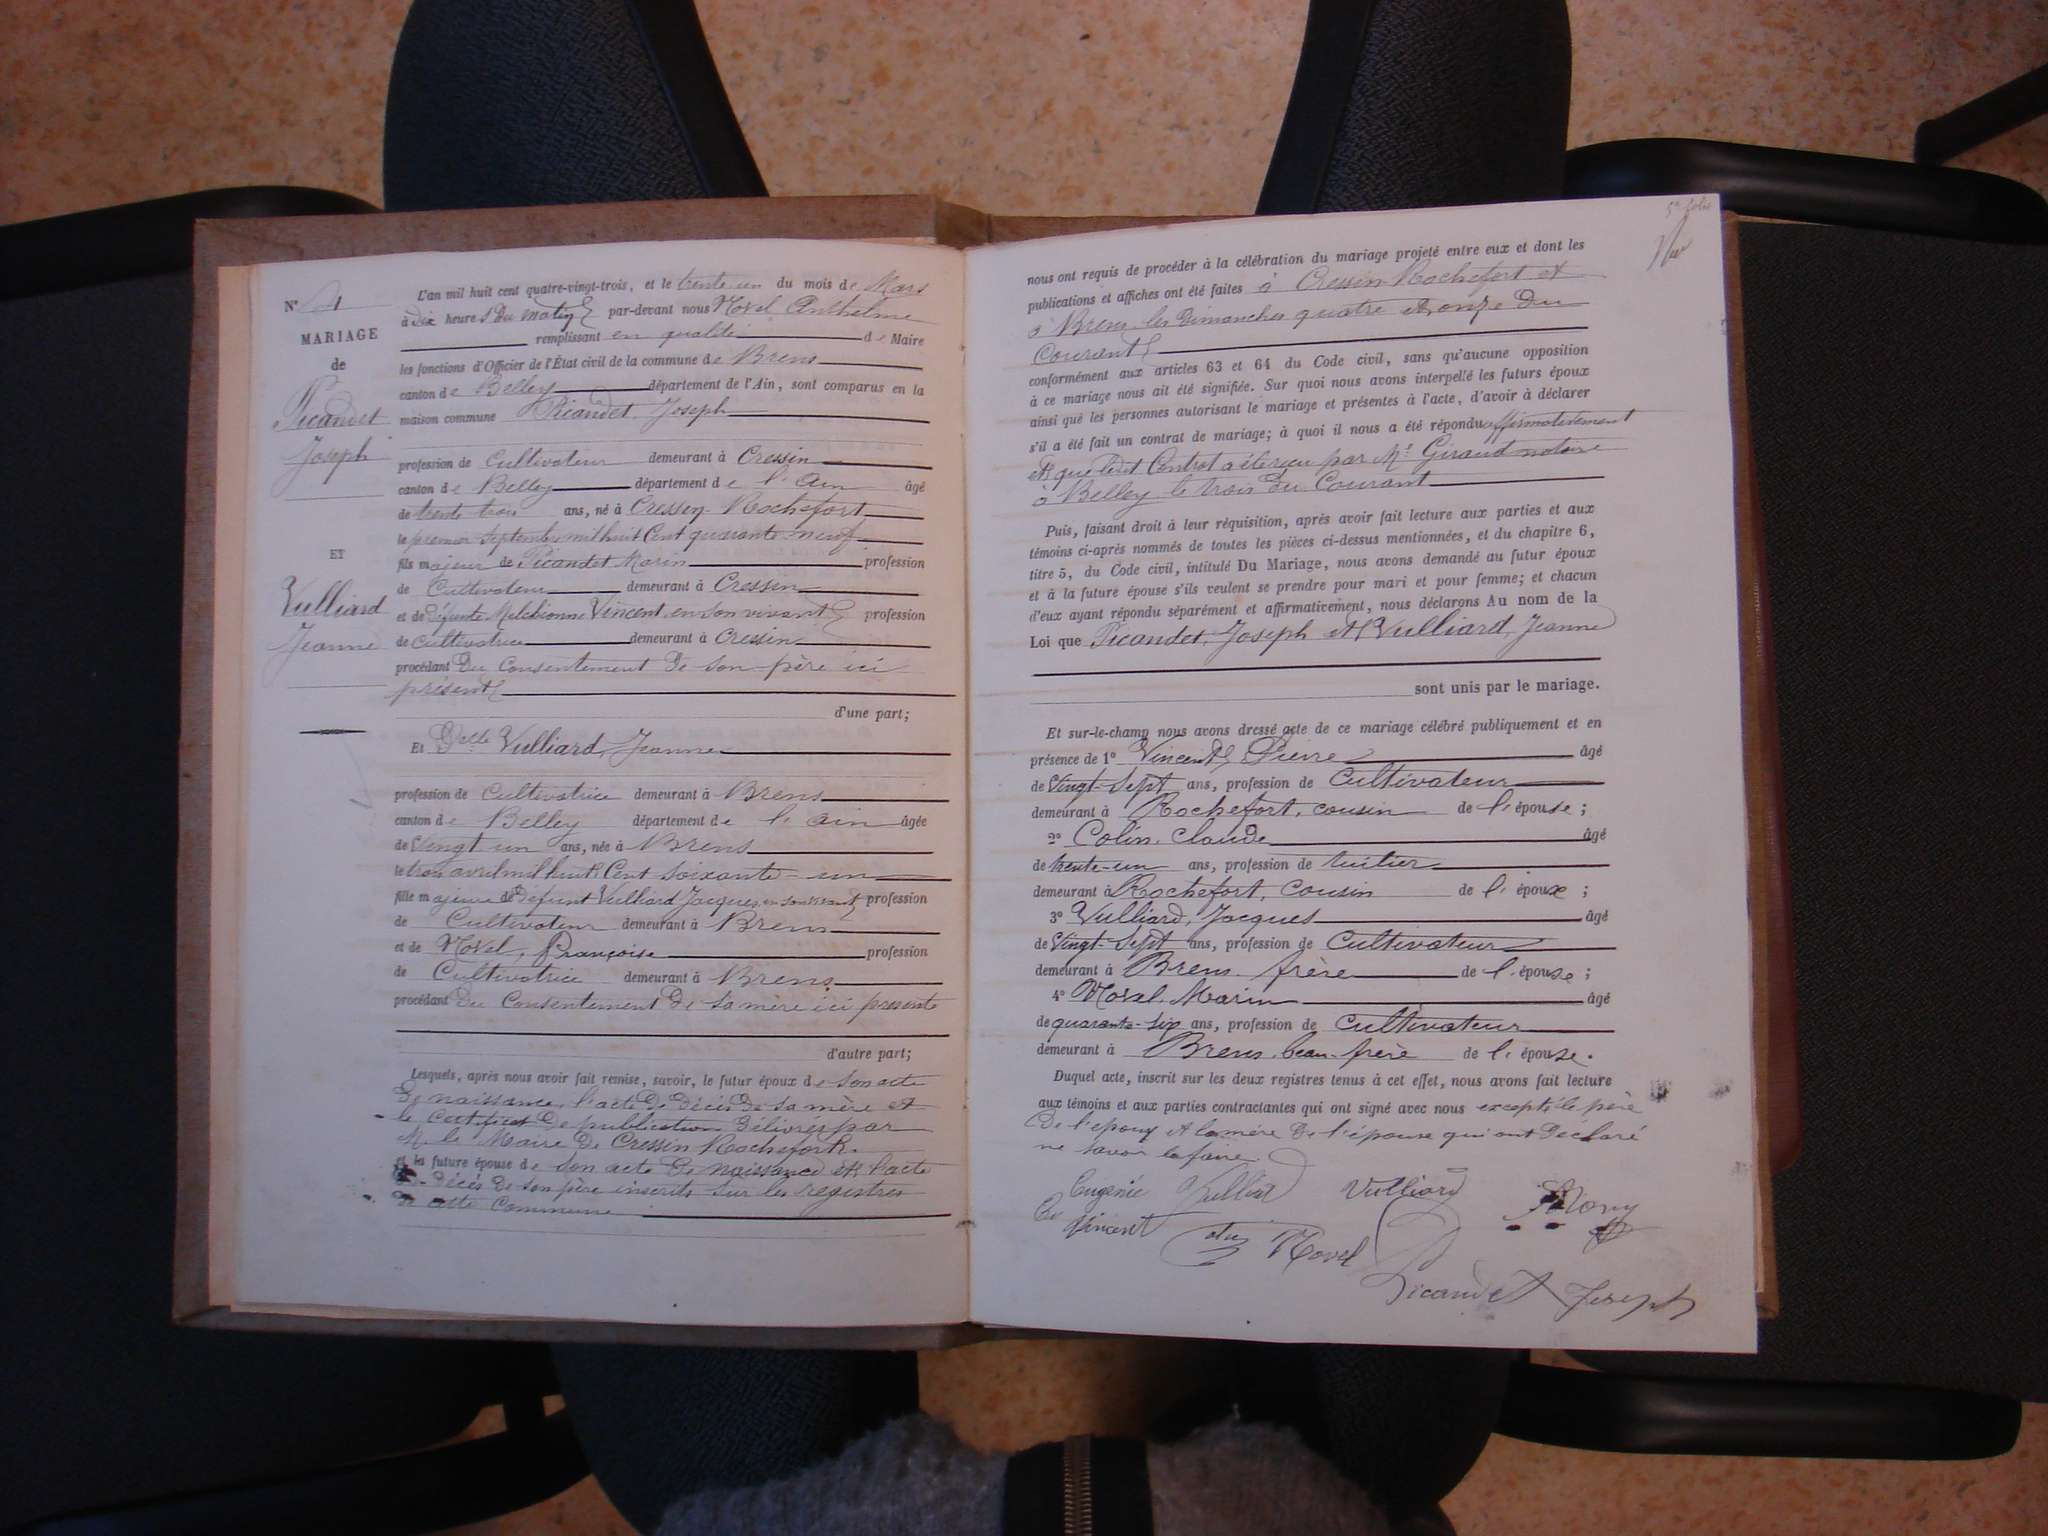 N° 4
MARIAGE
de
Picandet
Joseph
ET
Vulliard
Jeanne
L'an mil huit cent quatre-vingt-trois, et le trente un du mois de Mars
à dix heures du matin par-devant nous Novel Anthelme
remplissant en qualité de Maire
les fonctions d'Officier de l'État civil de la commune de Brens
canton de Belley département de l'Ain, sont comparus en la
maison commune Picandet, Joseph
profession de Cultivateur demeurant à Cressin
canton de Belley département de l'ain âgé
de trente trois ans, né à Cressin-Rochefort
le premier Septembre mil huit Cent quarante neuf
fils majeur de Picandet Marin profession
de Cultivateur demeurant à Cressin
et de défunte Melchionne Vincent, en son vivant profession
de cultivatrice demeurant à Cressin
procédant Du Consentement de son père ici
présent
d'une part;
Et Delle Vulliard, Jeanne
profession de Cultivatrice demeurant à Brens
canton de Belley département de l'ain âgée
de Vingt un ans, née à Brens
le trois avril mil huit Cent soixante-un
fille majeure de Défunt Vulliard Jacques, en son vivant profession
de Cultivateur demeurant à Brens
et de Novel, Françoise profession
de Cultivatrice demeurant à Brens
procédant du Consentement de sa mère ici présente
d'autre part;
Lesquels, après nous avoir fait remise, savoir, le futur époux de son acte
De naissance, l'acte de décès de sa mère et
le certificat de publication délivrés par
M. le Maire de Cressin Rochefort.
et la future épouse de son acte de naissance et l'acte
de décés de son père inscrits sur les registres
de cette Commune
5e folio
nous ont requis de procéder à la célébration du mariage projeté entre eux et dont les
publications et affiches ont été faites à Cressin-Rochefort et
à Brens, les Dimanches quatre et onze du
Courant
conformément aux articles 63 et 64 du Code civil, sans qu'aucune opposition
à ce mariage nous ait été signifiée. Sur quoi nous avons interpellé les futurs époux
ainsi que les personnes autorisant le mariage et présentes à l'acte, d'avoir à déclarer
s'il a été fait un contrat de mariage; à quoi il nous a été répondu affirmativement
et que ledit Contrat a été reçu par Me Giraud notaire
à Belley le trois du Courant
Puis, faisant droit à leur réquisition, après avoir fait lecture aux parties et aux
témoins ci-après nommés de toutes les pièces ci-dessus mentionnées, et du chapitre 6,
titre 5, du Code civil, intitulé Du Mariage, nous avons demandé au futur époux
et à la future épouse s'ils veulent se prendre pour mari et pour femme; et chacun
d'eux ayant répondu séparément et affirmativement, nous déclarons Au nom de la
Loi que Picandet, Joseph et Vulliard, Jeanne
sont unis par le mariage.
Et sur-le-champ nous avons dressé acte de ce mariage célébré publiquement et en
présence de 1° Vincent, Pierre âgé
de Vingt-Sept ans, profession de Cultivateur
demeurant à Rochefort, cousin de l'épouse;
2° Colin, Claude âgé
de trente-un ans, profession de tuilier
demeurant à Rochefort, Cousin de l'époux;
3° Vulliard, Jacques âgé
de Vingt-Sept ans, profession de Cultivateur
demeurant à Brens, frère de l'épouse;
4° Novel, Marin âgé
de quarante-six ans, profession de Cultivateur
demeurant à Brens, beau-frère de l'épouse.
Duquel acte, inscrit sur les deux registres tenus à cet effet, nous avons fait lecture
aux témoins et aux parties contractantes qui ont signé avec nous excepté le père
De l'époux et la mère De l'épouse qui ont Déclaré
ne savoir le faire.
Eugénie Vulliard
Vincent Novel
Picandet Joseph